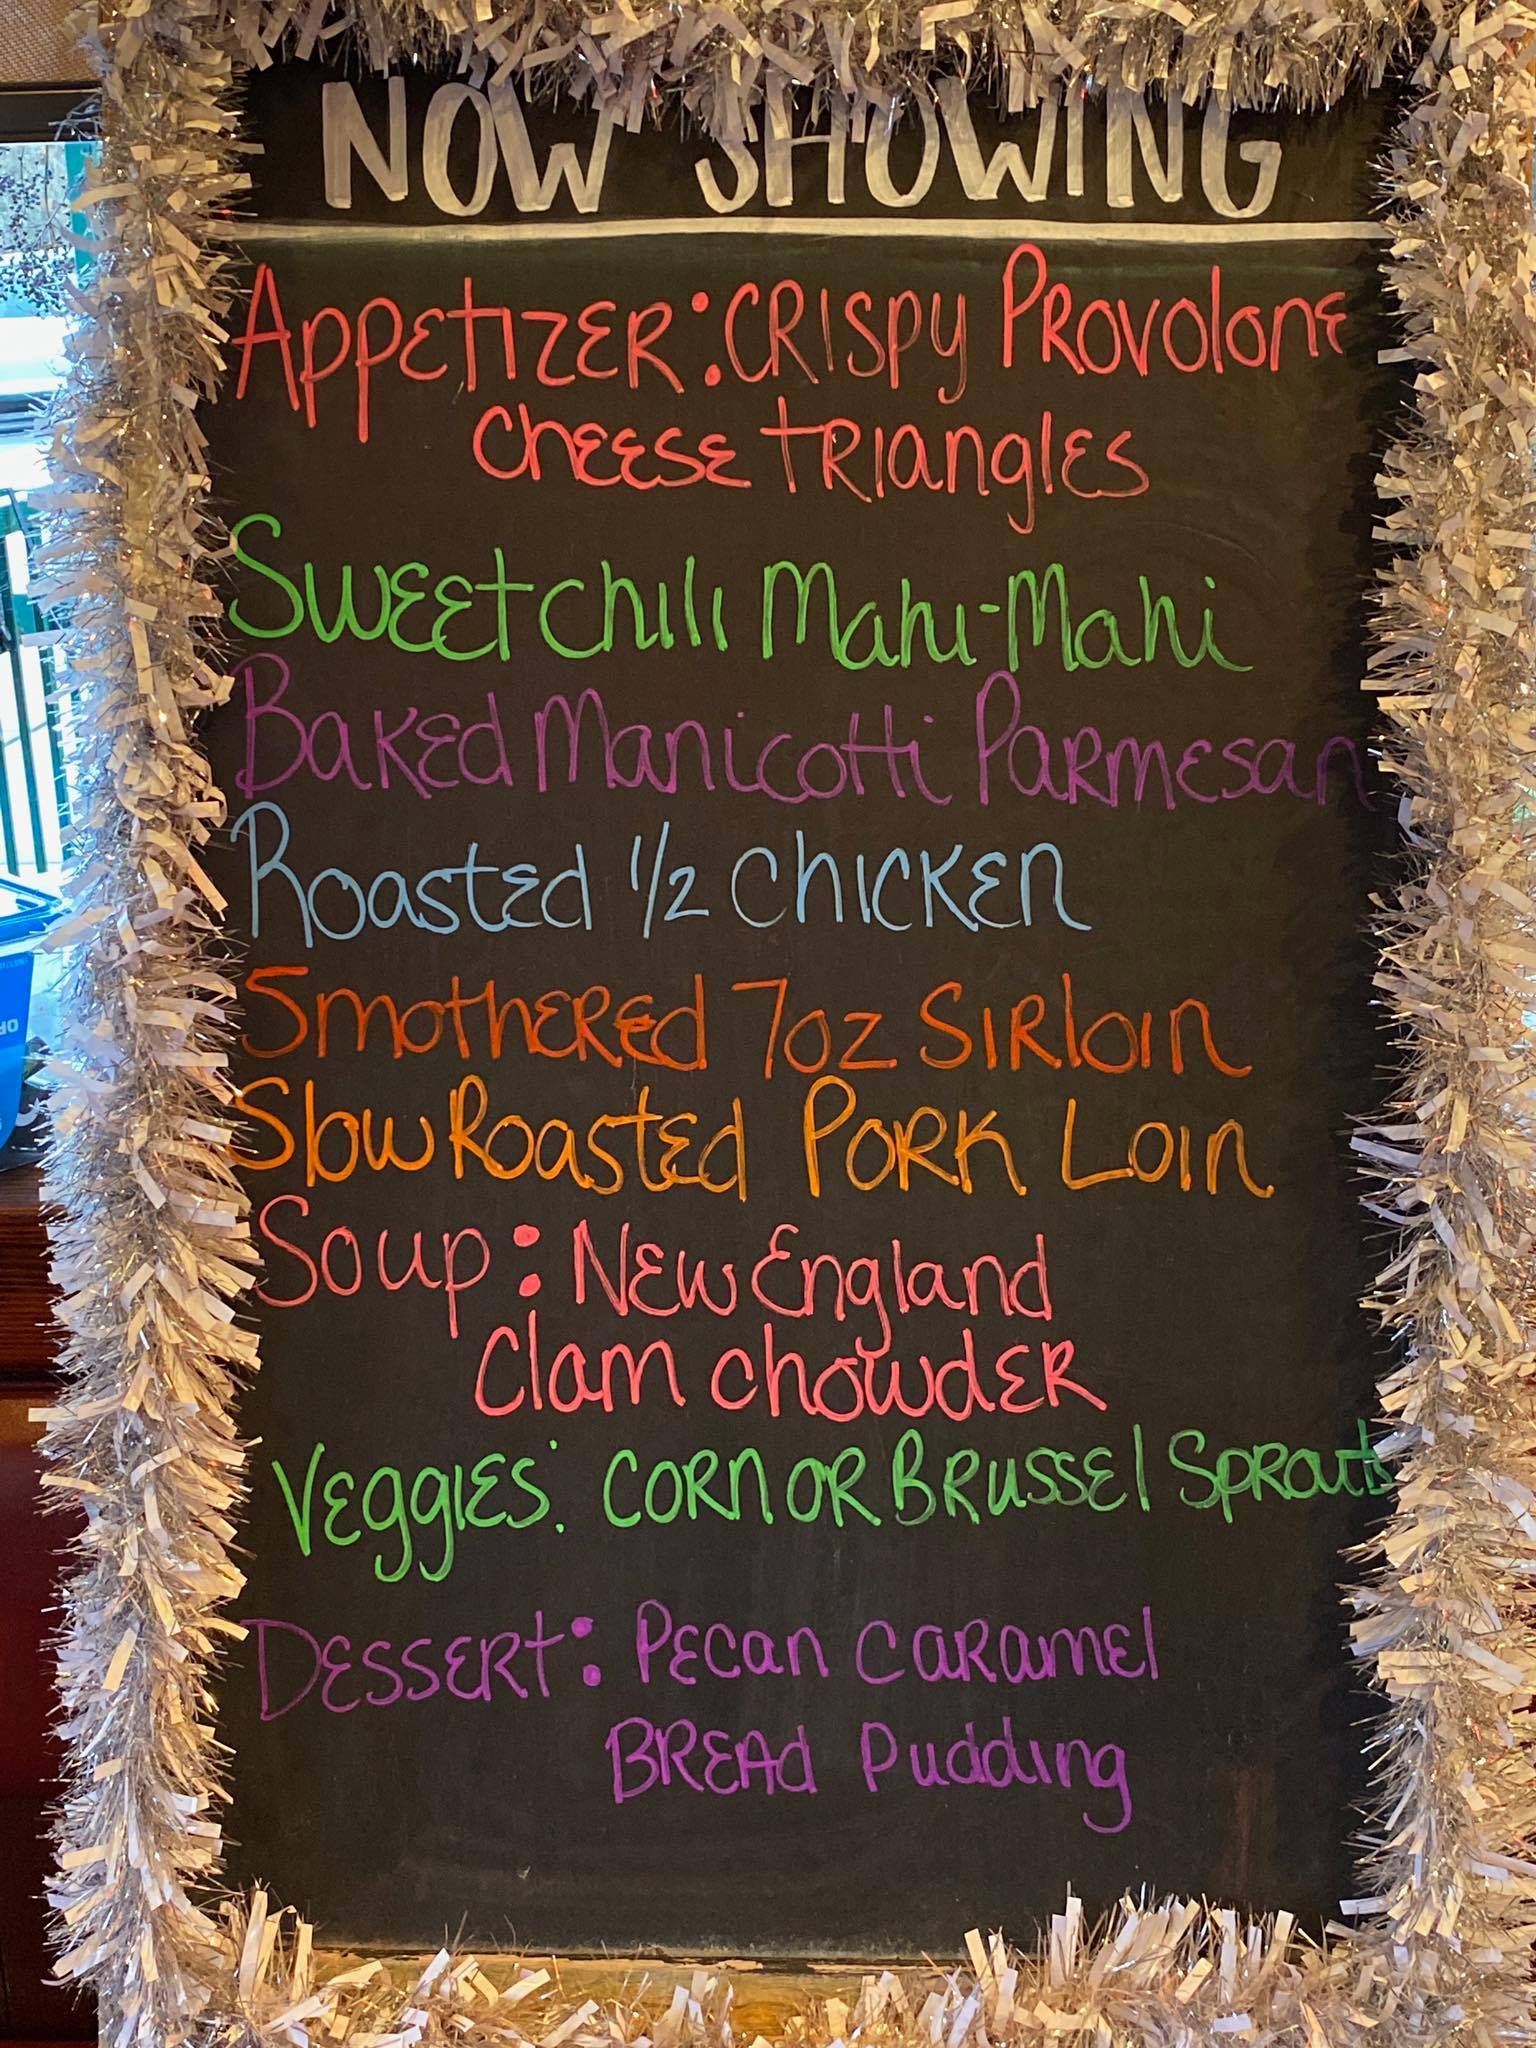 NOW SHOWING
Appetizer: Crispy Provolone
Cheese Triangles
Sweet chili Mahi-Mahi
Baked Manicotti Parmesan
Roasted 1/2 Chicken
Smothered 7oz Sirloin
Slow Roasted Pork Loin
Soup: New England
Clam Chowder
Veggies: Corn or Brussel Sprouts
Dessert: Pecan Caramel
Bread Pudding